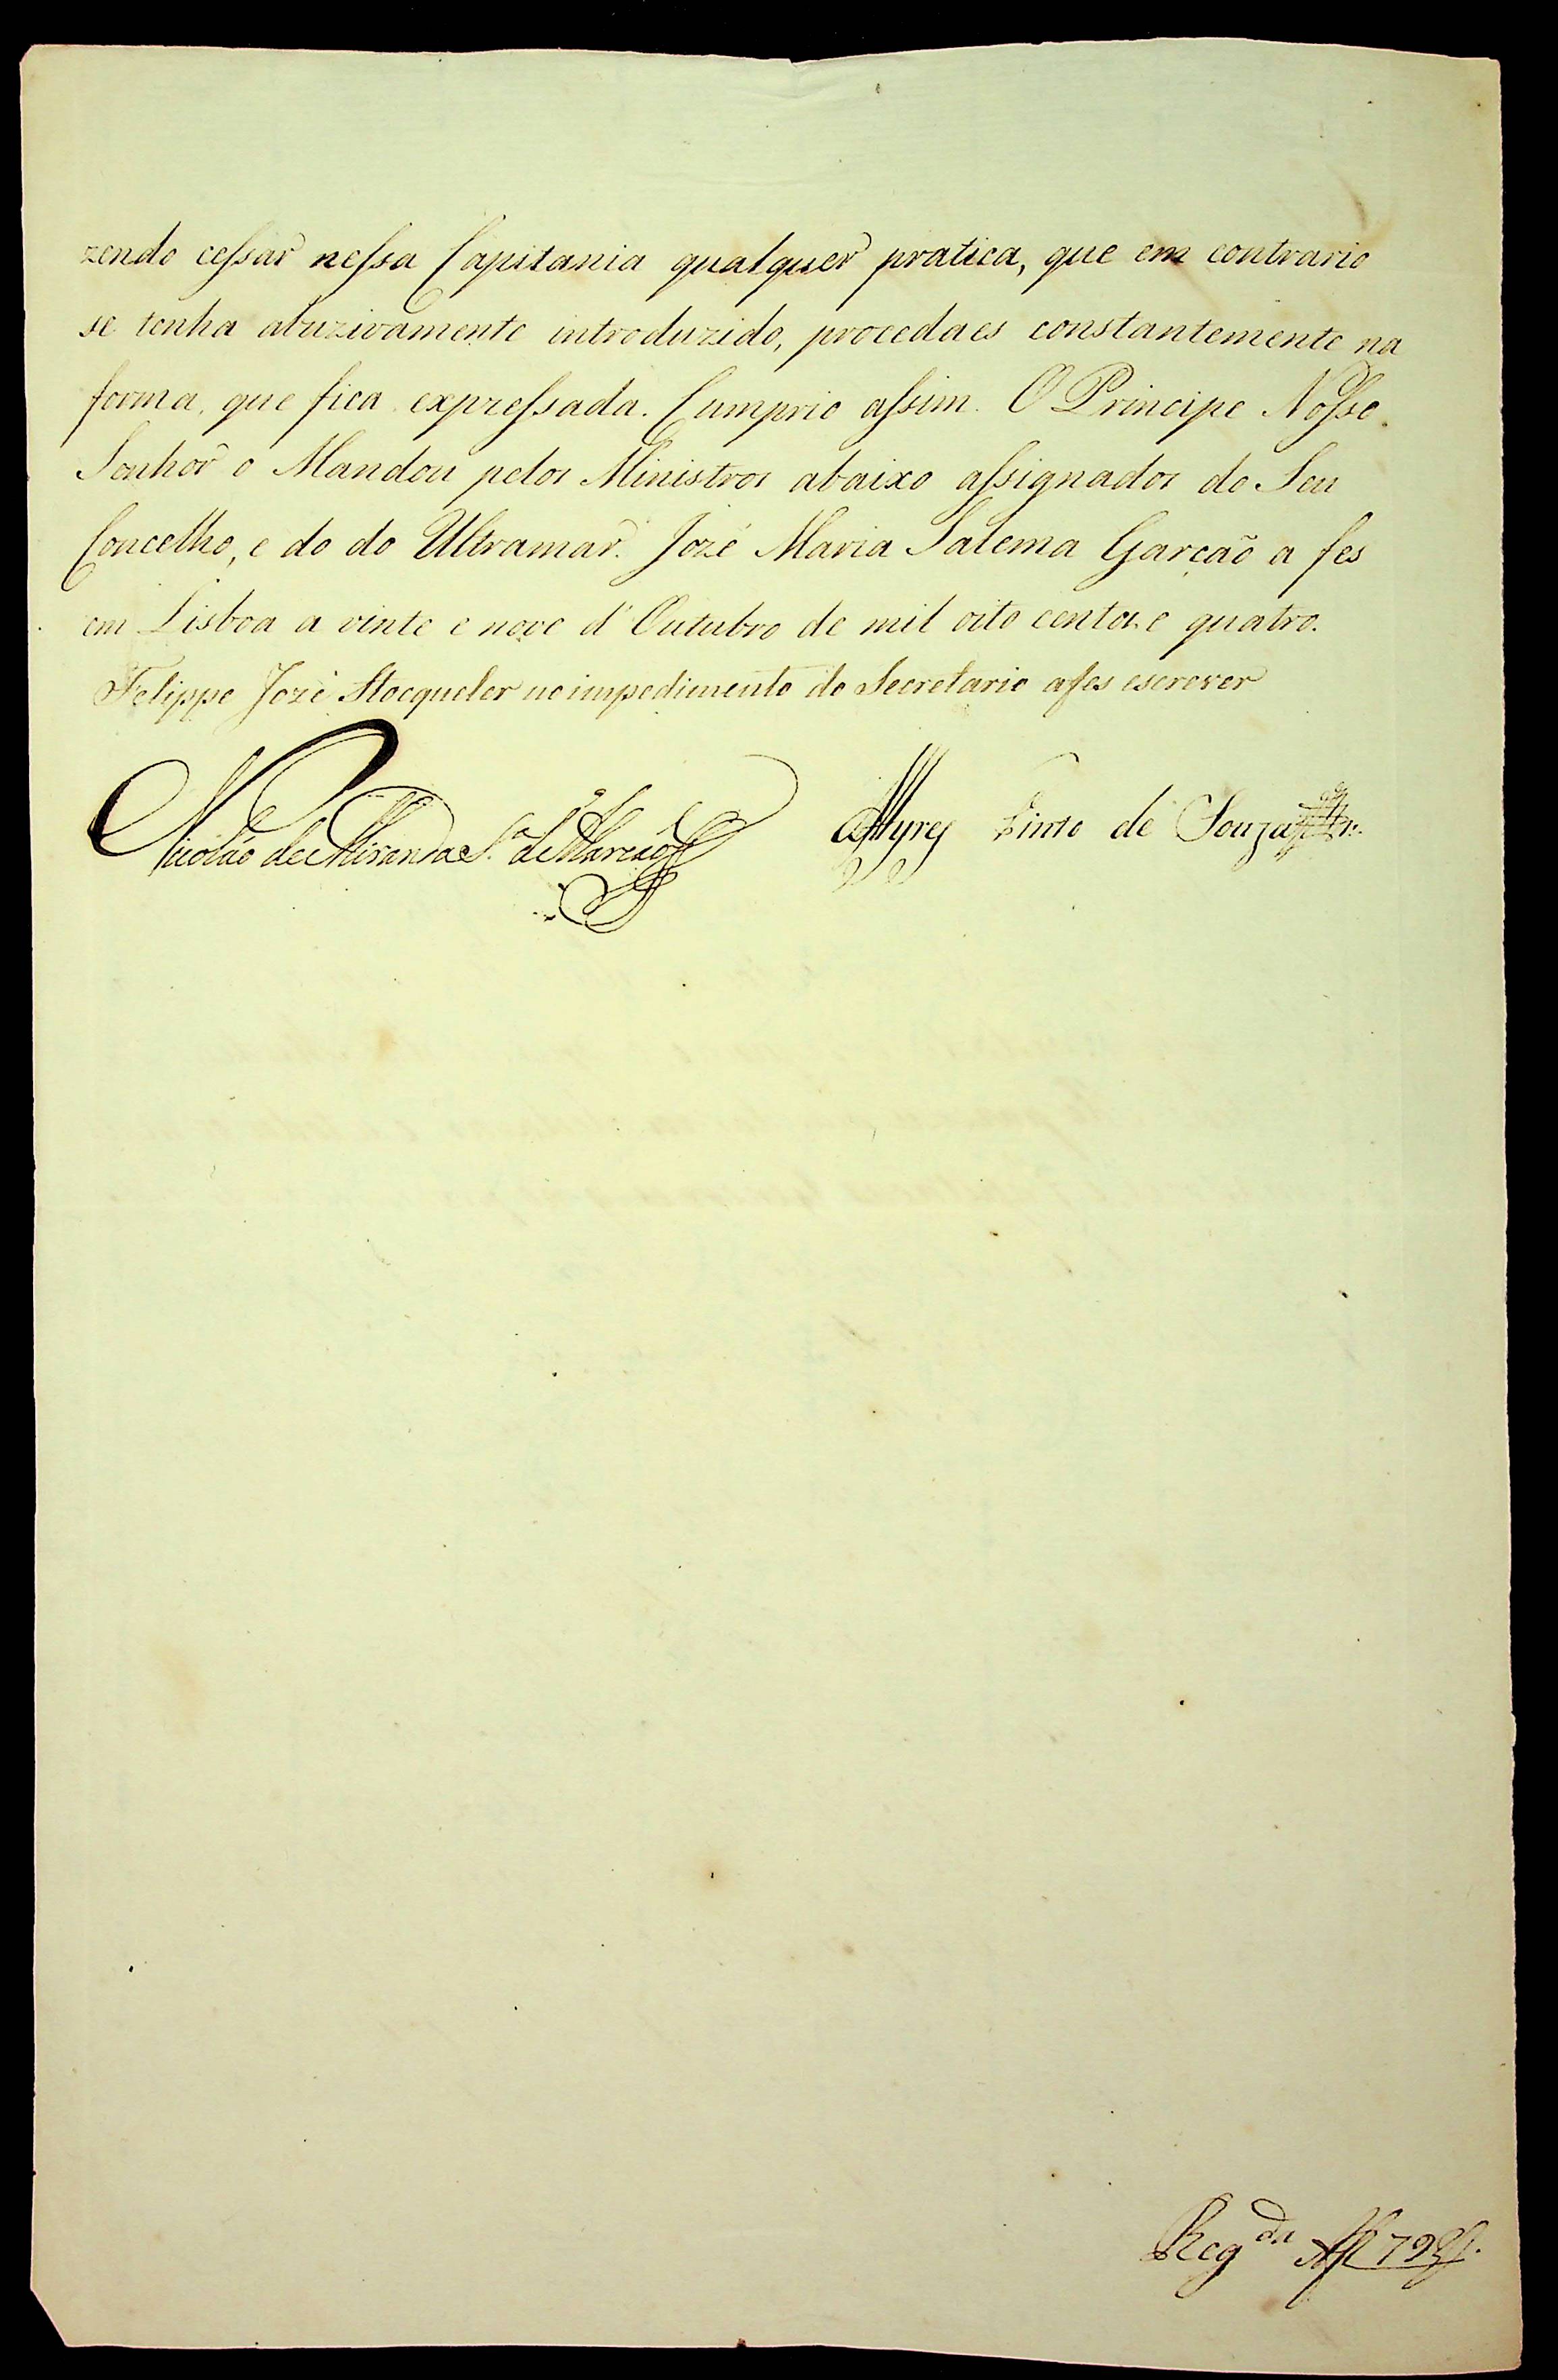 zendo cessar nessa Capitania qualquer pratica, que em contrario
se tenha abuzivamente introduzido, procedaes constantemente na
forma, que fica expressada. Cumprio assim. O Principe Nosso
Senhor o Mandou pelos Ministros abaixo assignados do Seu
Concelho, e do do Ultramar. Jozé Maria Salema Garcaõ a fes
em Lisboa a vinte e nove d'Outubro de mil oito centos e quatro.
Felippe Jozé Stocqueler no impedimento do Secretario a fes escrever
Nicoláo de Miranda S.ª de Alarcaõ
Ayres Pinto de Souza
Reg.da Afl 79